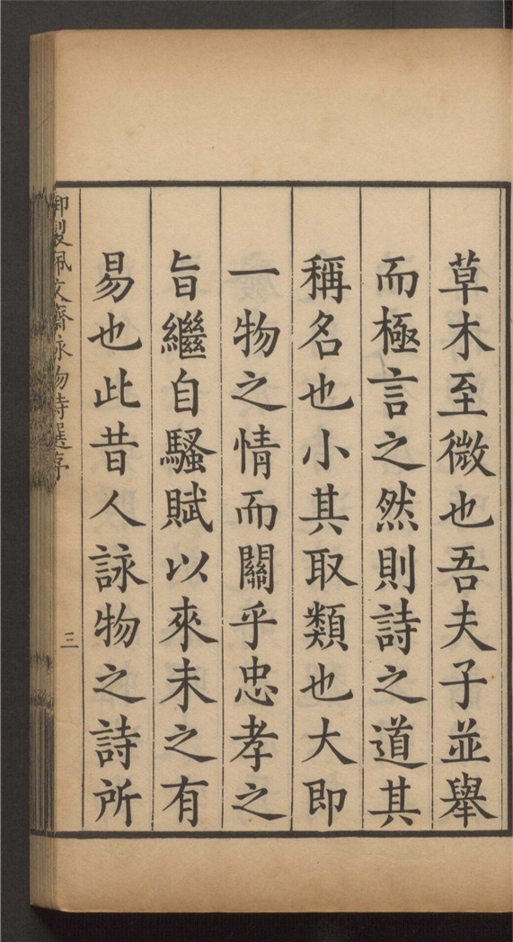 草木至微也吾夫子並舉
而極言之然則詩之道其
稱名也小其取類也大即
一物之情而關乎忠孝之
旨繼自騷賦以來未之有
易也此昔人詠物之詩所
御製佩文齋詠物詩選序
三